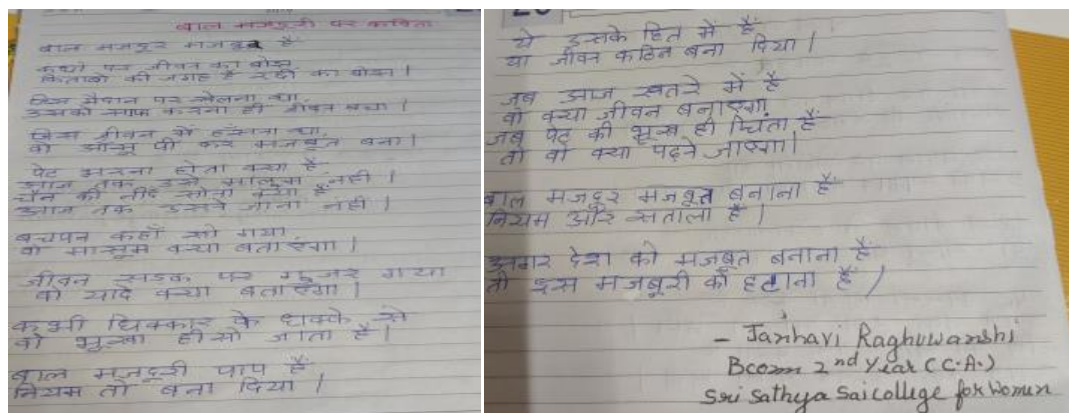 बाल मजदूरी पर कविता
बाल मजदूर मजबूर है
कंधों पर जीवन का बोझ
किताबों की जगह है रद्दी का बोझ।
जिस मैदान पर खेलना था
उसको साफ करना ही जीवन बना।
जिस जीवन में हँसना था,
वो आँसू पी कर मजबूत बना।
पेट भरना होता क्या है
आज तक उसे मालूम नहीं।
चैन की नींद सोना क्या है
आज तक उसने जाना नहीं।
बचपन कहाँ खो गया
वो मासूम क्या बताएगा।
जीवन सड़क पर गुजर गया
वो यादें क्या बताएगा।
कभी धिक्कार के धक्के से
वो भूखा ही सो जाता है।
बाल मजदूरी पाप है
नियम तो बना दिया।
ये उसके हित में है
या जीवन कठिन बना दिया।
जब आज खतरे में है
वो क्या जीवन बनाएगा
जब पेट की भूख ही चिंता है
तो वो क्या पढ़ने जाएगा।
बाल मजदूर मजबूत बनाना है
नियम और सताला है।
अगर देश को मजबूत बनाना है
तो इस मजबूरी को हटाना है।
- Janhavi Raghuwanshi
Bcom 2nd Year (C.A.)
Sri Sathya Sai college for Women